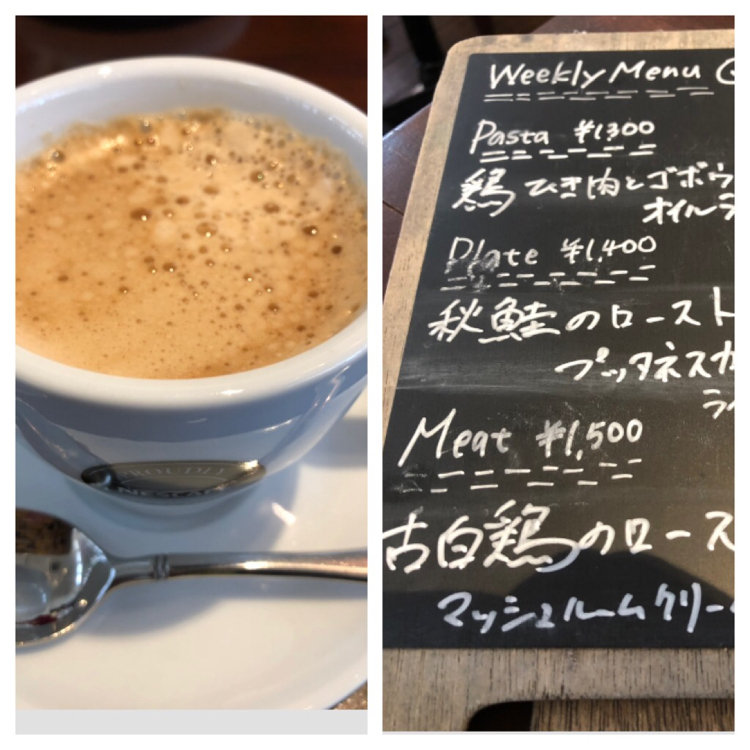 PROUDLY
NESCAFÉ
Weekly Menu
Pasta ¥1,300
鶏ひき肉とゴボウ
オイルラ
Plate ¥1,400
秋鮭のロースト
プッタネスカ
ライ
Meat ¥1,500
古白鶏のロース
マッシュルームクリーム